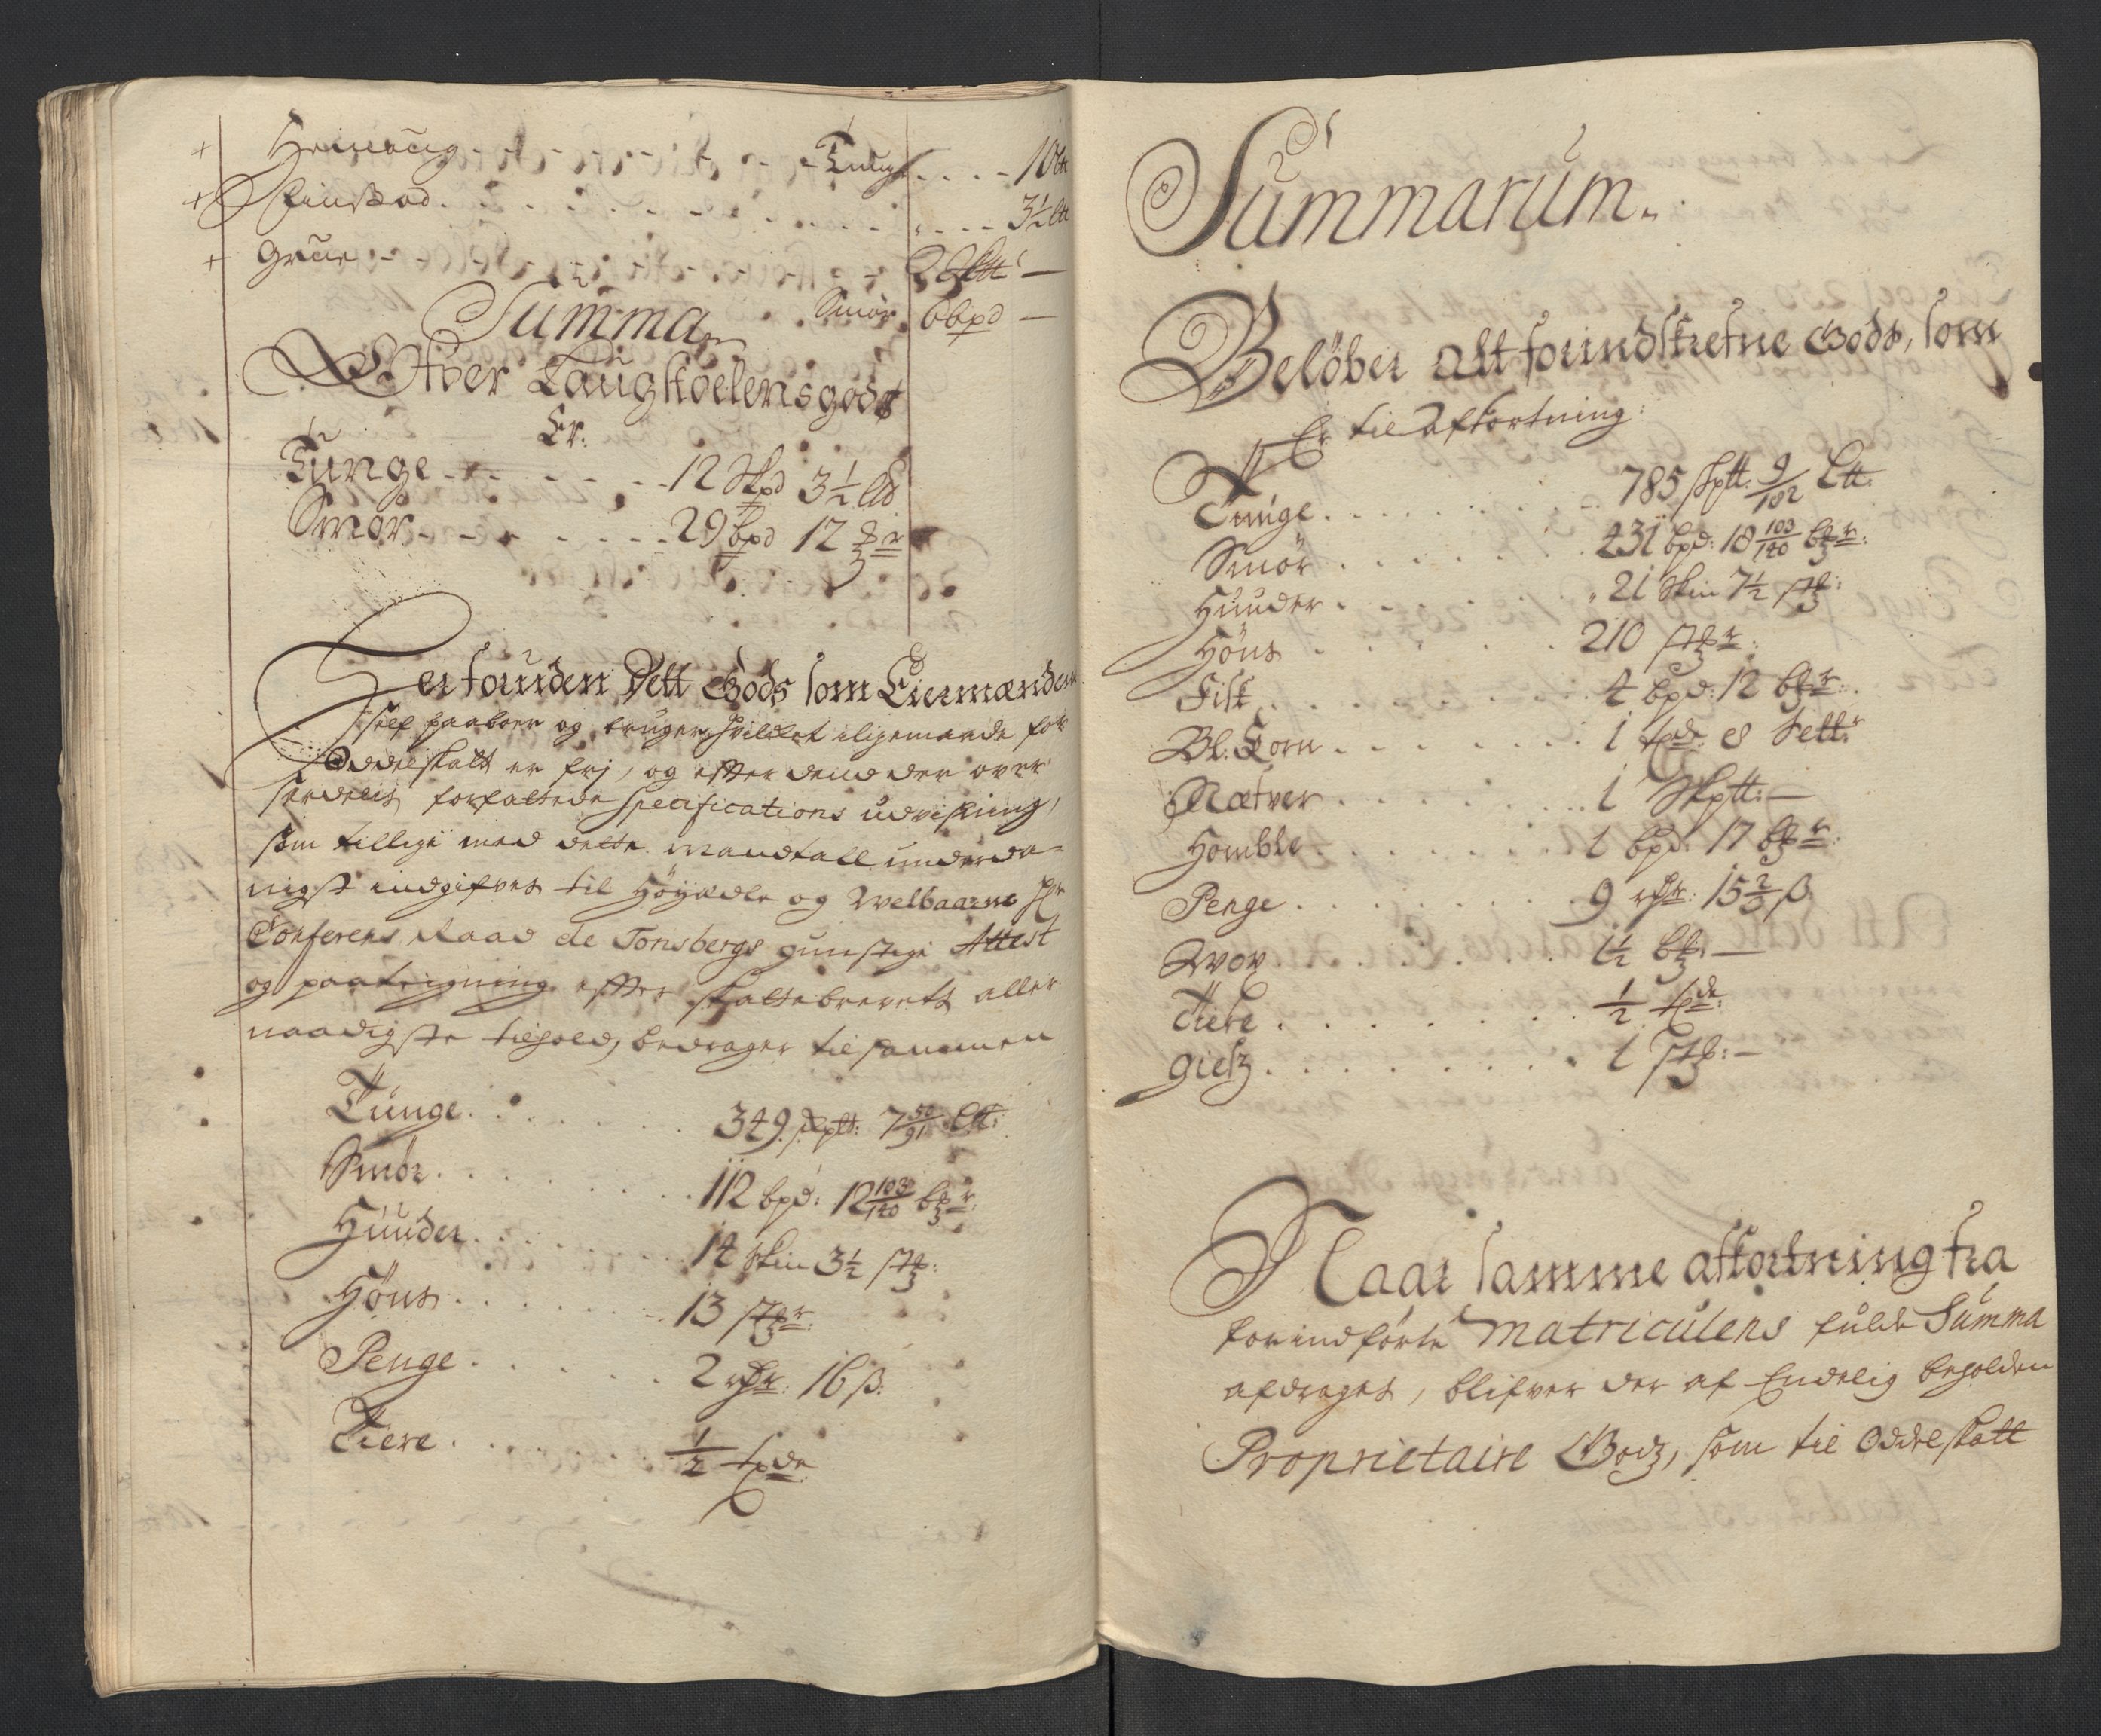 + Tunge . . . . 10 Ltt
+ . . . . 3½ Ltt
+ Grue - - -
Smör 6 bpd —
Summa
Ofver Laugstoelensgods
Er:
Tunge - - - - - 12 Skpd 3½ Ltt
Smör - - - - - 29 bpd 12
Der foruden Dett Gods som Eiermændene
self paaboer og bruger, hvilcket iligemaade for
Oddelskatt er frj, og efter dend der over
serdelis forfattede Specifications udvisning,
som tillige med dette Mandtall underda-
nigst indgifves til Höyædle og Welbaarne Hr
Conferens Raad de Tonsbergs gunstige Attest
og paategning efter Skattebrevets aller
naadigste tilhold, bedrager til sammen
Tunge . . . . . 349 skptt: 7 50/91 Ltt:
Smör . . . . . 112 bpd: 12 103/140 b
Huuder . . . . 14 skin 3½ st
Höns . . . . . 13 st
Penge . . . . . 2 rdr: 16 ß:
Tiere . . . . . ½ tde
Summarum
Belöber alt forindskrefne Gods, som
Er til Afkortning:
Tunge . . . . . 785 skptt: 9/182 Ltt:
Smör . . . . . 231 bpd: 18 103/140 b
Huuder . . . . 21 skin 7½ st
Höns . . . . . 210 st
Fisk . . . . . 4 bpd: 12 b
Bl: Korn . . . . . 1 tde 8 Sett
Næfver . . . . . 1 Skptt: —
Homble . . . . . 1 bpd: 17 b
Penge . . . . . 9 rdr: 15 2/3 ß
. . . . . 1½ b —
Tiere . . . . . ½ tde:
Gietz . . . . . 1 st: —
Naar samme afkortning fra
forindförte Matriculens fulde Summa
afdrages, blifver der af Endelig beholden
Proprietaire Godz, som til Oddelskatt